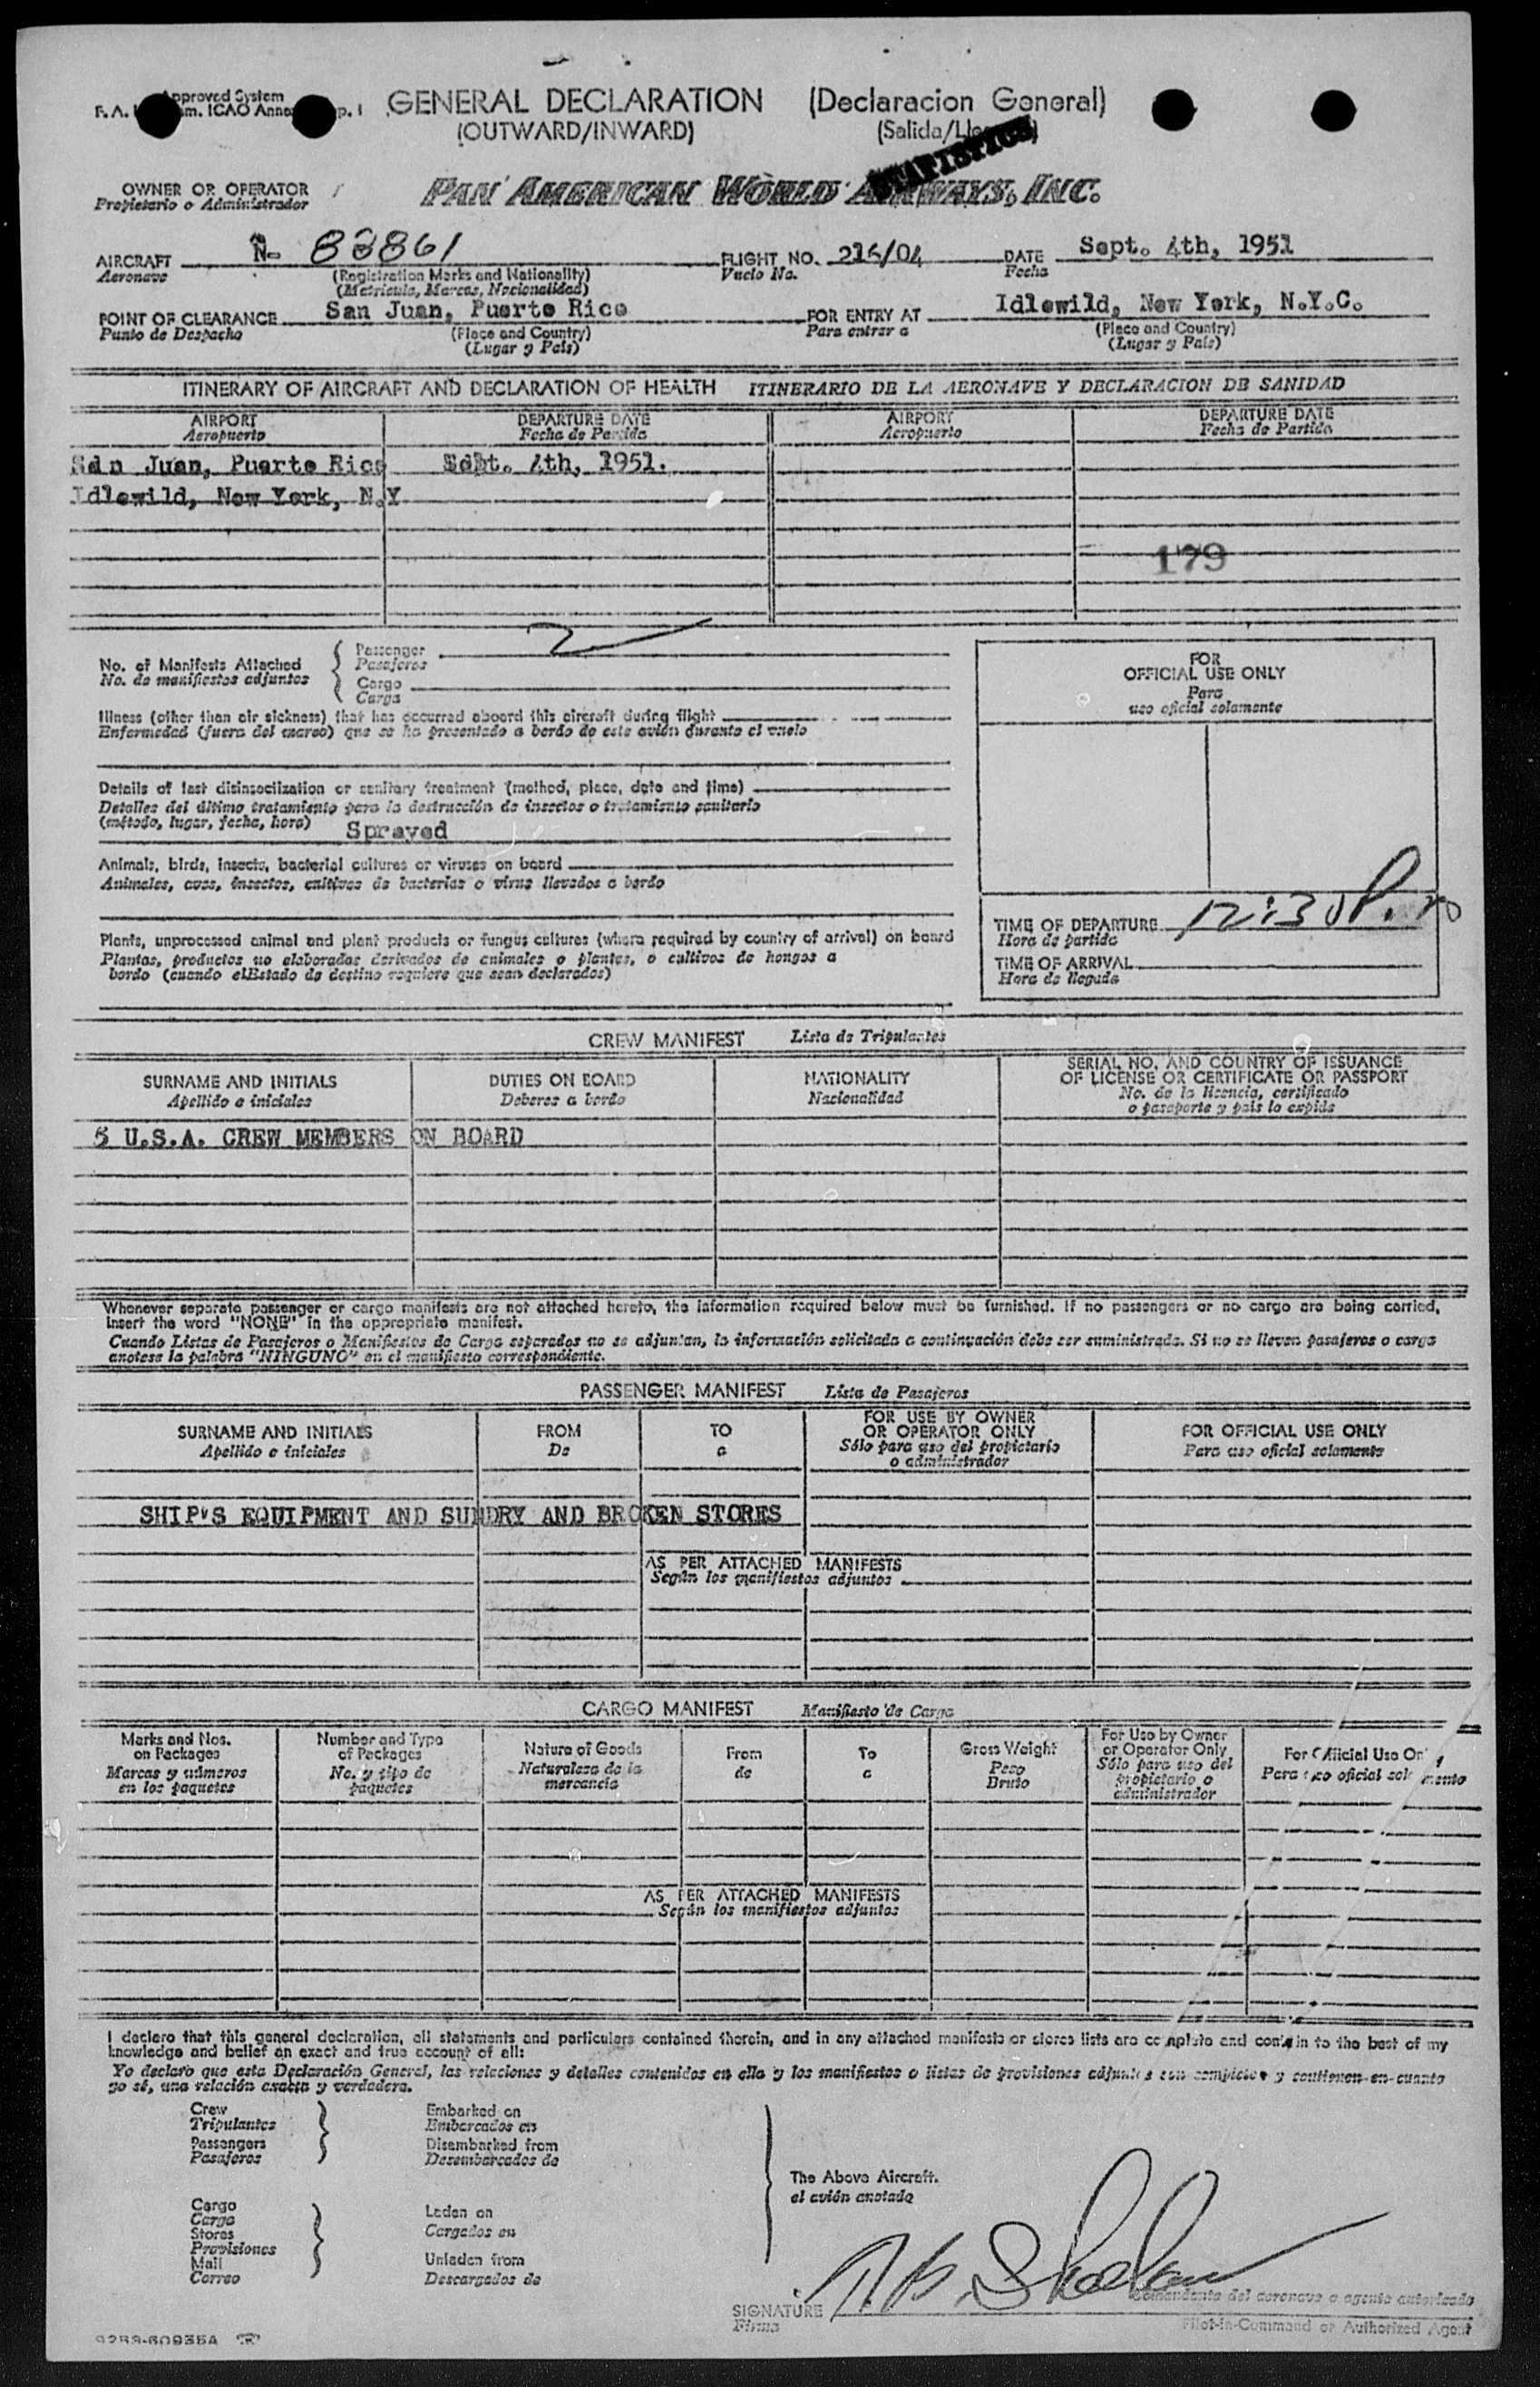 Approved System
F. A. ICAO
GENERAL DECLARATION (Declaracion General)
(OUTWARD/INWARD) (Salida/
STATISTICS
OWNER OR OPERATOR
Propietario o Administrador
PAN AMERICAN WORLD AIRWAYS, INC.
AIRCRAFT N- 88861 FLIGHT NO. 216/04 DATE Sept. 4th, 1951
Aeronave (Registration Marks and Nationality) Vuelo No. Fecha
(Matricula, Marcas, Nacionalidad)
POINT OF CLEARANCE San Juan, Puerto Rico FOR ENTRY AT Idlewild, New York, N.Y.C.
Punto de Despacho (Place and Country) Para entrar a (Place and Country)
(Lugar y País) (Lugar y País)
ITINERARY OF AIRCRAFT AND DECLARATION OF HEALTH ITINERARIO DE LA AERONAVE Y DECLARACION DE SANIDAD
AIRPORT DEPARTURE DATE AIRPORT DEPARTURE DATE
Aeropuerto Fecha de Partida Aeropuerto Fecha de Partida
San Juan, Puerto Rico Sept. 4th, 1951.
Idlewild, New York, N.Y
179
No. of Manifests Attached
No. de manifiestos adjuntos
Passenger 2
Pasajeros
Cargo
Carga
FOR
OFFICIAL USE ONLY
Para
uso oficial solamente
Illness (other than air sickness) that has occurred aboard this aircraft during flight
Enfermedad (fuera del mareo) que se ha presentado a bordo de este avión durante el vuelo
Details of last disinsectization or sanitary treatment (method, place, date and time)
Detalles del último tratamiento para la destrucción de insectos o tratamiento sanitario
(método, lugar, fecha, hora) Sprayed
Animals, birds, insects, bacterial cultures or viruses on board
Animales, aves, insectos, cultivos de bacterias o virus llevados a bordo
Plants, unprocessed animal and plant products or fungus cultures (where required by country of arrival) on board
Plantas, productos no elaborados derivados de animales o plantas, o cultivos de hongos a
bordo (cuando elEstado de destino requiere que sean declarados)
TIME OF DEPARTURE 12:30 P.m
Hora de partida
TIME OF ARRIVAL
Hora de llegada
CREW MANIFEST Lista de Tripulantes
SURNAME AND INITIALS DUTIES ON BOARD NATIONALITY SERIAL NO. AND COUNTRY OF ISSUANCE
OF LICENSE OR CERTIFICATE OR PASSPORT
Apellido e iniciales Deberes a bordo Nacionalidad No. de la licencia, certificado
o pasaporte y país lo expide
5 U.S.A. CREW MEMBERS ON BOARD
Whenever separate passenger or cargo manifests are not attached hereto, the information required below must be furnished. If no passengers or no cargo are being carried,
insert the word "NONE" in the appropriate manifest.
Cuando Listas de Pasajeros o Manifiestos de Carga separados no se adjuntan, la información solicitada a continuación debe ser suministrada. Si no se llevan pasajeros o carga
anotese la palabra "NINGUNO" en el manifiesto correspondiente.
PASSENGER MANIFEST Lista de Pasajeros
SURNAME AND INITIALS FROM TO FOR USE BY OWNER
OR OPERATOR ONLY FOR OFFICIAL USE ONLY
Apellido e iniciales De a Sólo para uso del propietario
o administrador Para uso oficial solamente
SHIP'S EQUIPMENT AND SUNDRY AND BROKEN STORES
AS PER ATTACHED MANIFESTS
Según los manifiestos adjuntos
CARGO MANIFEST Manifiesto de Carga
Marks and Nos.
on Packages
Marcas y números
en los paquetes
Number and Type
of Packages
No. y tipo de
paquetes
Nature of Goods
Naturaleza de la
mercancía
From
de
To
a
Gross Weight
Peso
Bruto
For Use by Owner
or Operator Only
Sólo para uso del
propietario o
administrador
For Official Use Only
Para uso oficial solamente
AS PER ATTACHED MANIFESTS
Según los manifiestos adjuntos
I declare that this general declaration, all statements and particulars contained therein, and in any attached manifests or stores lists are complete and contain to the best of my
knowledge and belief an exact and true account of all:
Yo declaro que esta Declaración General, las relaciones y detalles contenidos en ella y los manifiestos o listas de provisiones adjuntos son completos y contienen en cuanto
yo sé, una relación exacta y verdadera.
Crew Embarked on
Tripulantes Embarcados en
Passengers Disembarked from
Pasajeros Desembarcados de
The Above Aircraft.
el avión anotado
Cargo Laden on
Carga Cargados en
Stores
Provisiones
Mail Unladen from
Correo Descargados de
SIGNATURE
Firma
Comandante del aeronave o agente autorizado
Pilot-in-Command or Authorized Agent
9283-60935A